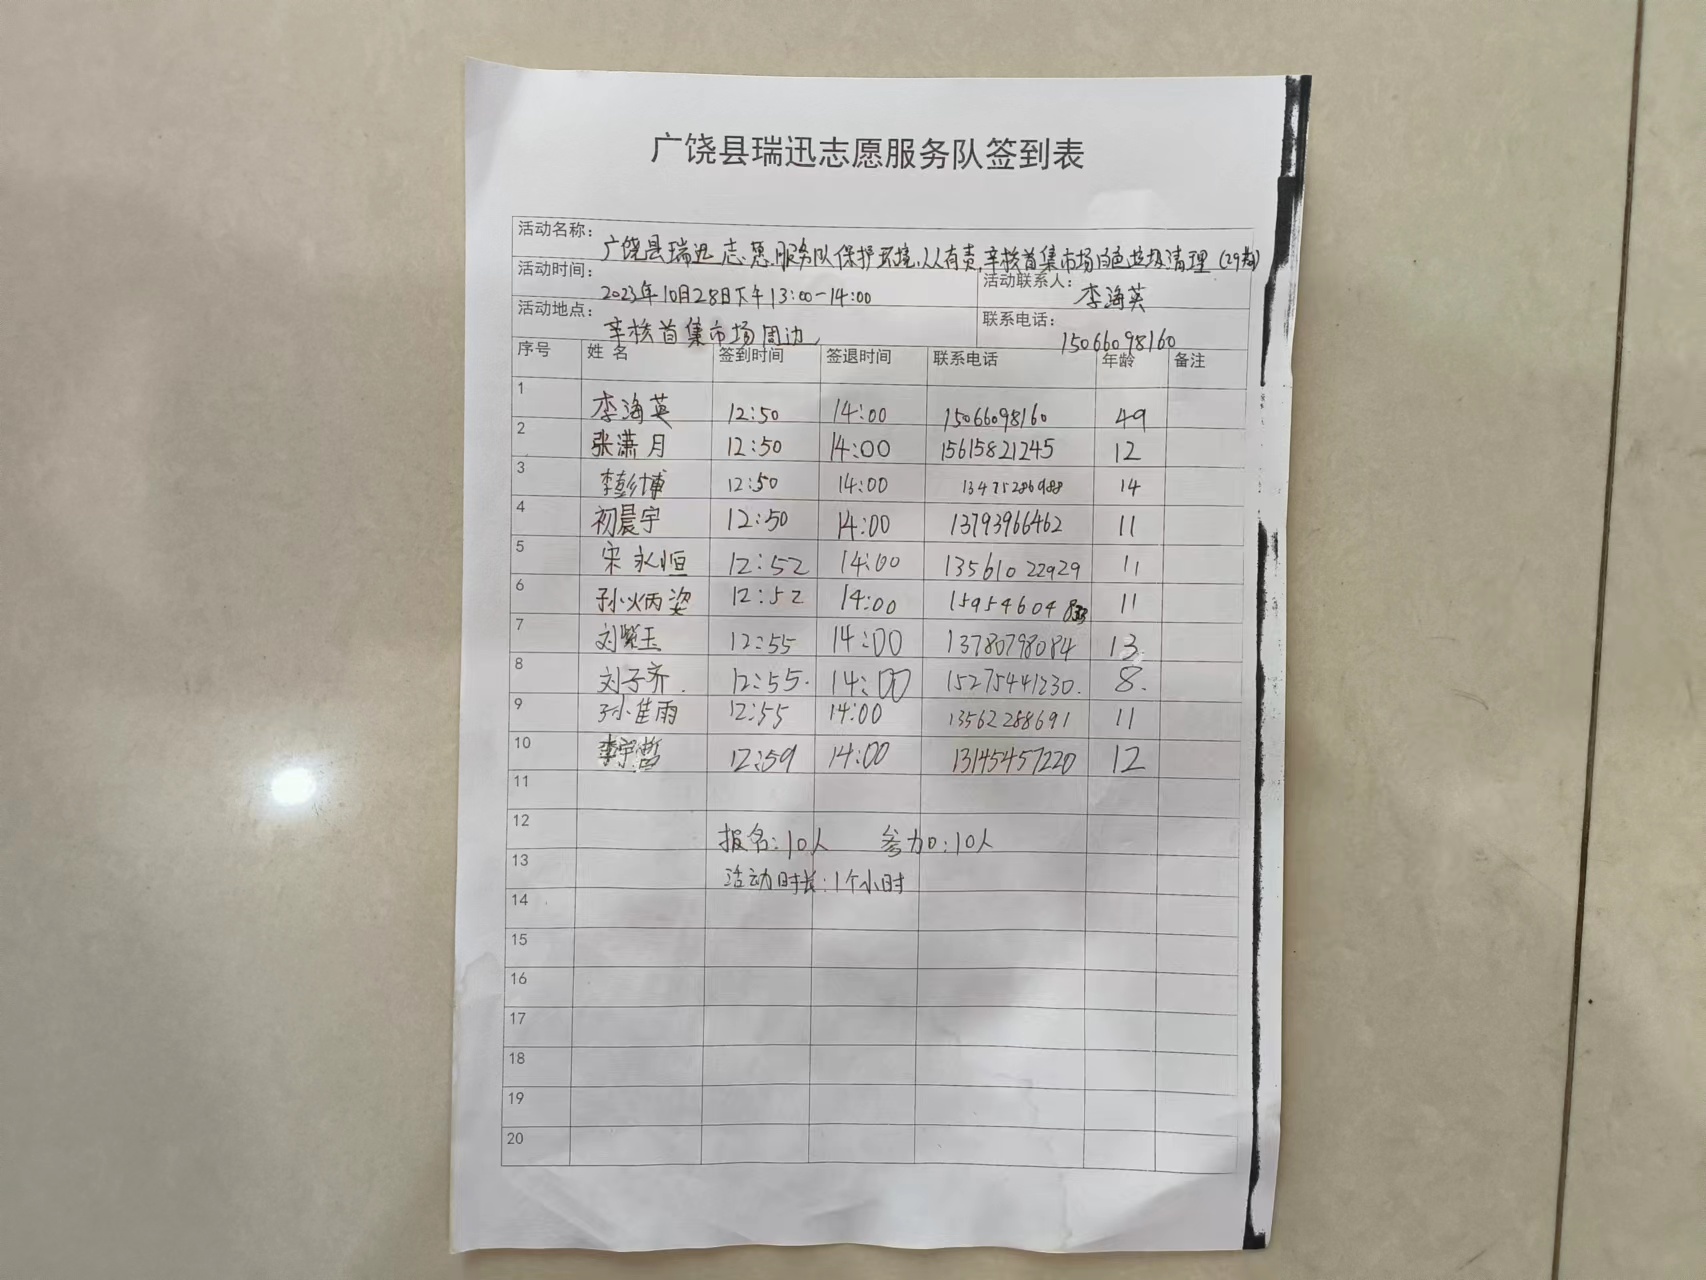 广饶县瑞迅志愿服务队签到表
活动名称： 广饶县瑞迅志愿服务队保护环境，人人有责，辛桥首集市场白色垃圾清理
活动时间： 2023年10月28日下午13:00-14:00 活动联系人： 李海英
活动地点： 辛桥首集市场周边 联系电话： 15066098160
序号 姓 名 签到时间 签退时间 联系电话 年龄 备注
1 李海英 12:50 14:00 15066098160 49
2 张潇月 12:50 14:00 15615821245 12
3 李彭博 12:50 14:00 13475286988 14
4 初晨宇 12:50 14:00 13793966462 11
5 宋永恒 12:52 14:00 13561022929 11
6 孙炳姿 12:52 14:00 15954604833 11
7 刘紫玉 12:55 14:00 13780798084 13
8 刘子齐 12:55 14:00 15275441230 8
9 孙佳雨 12:55 14:00 13562288691 11
10 李宇哲 12:59 14:00 13145457220 12
11
12 报名：10人 参加：10人
13 活动时长：1个小时
14
15
16
17
18
19
20